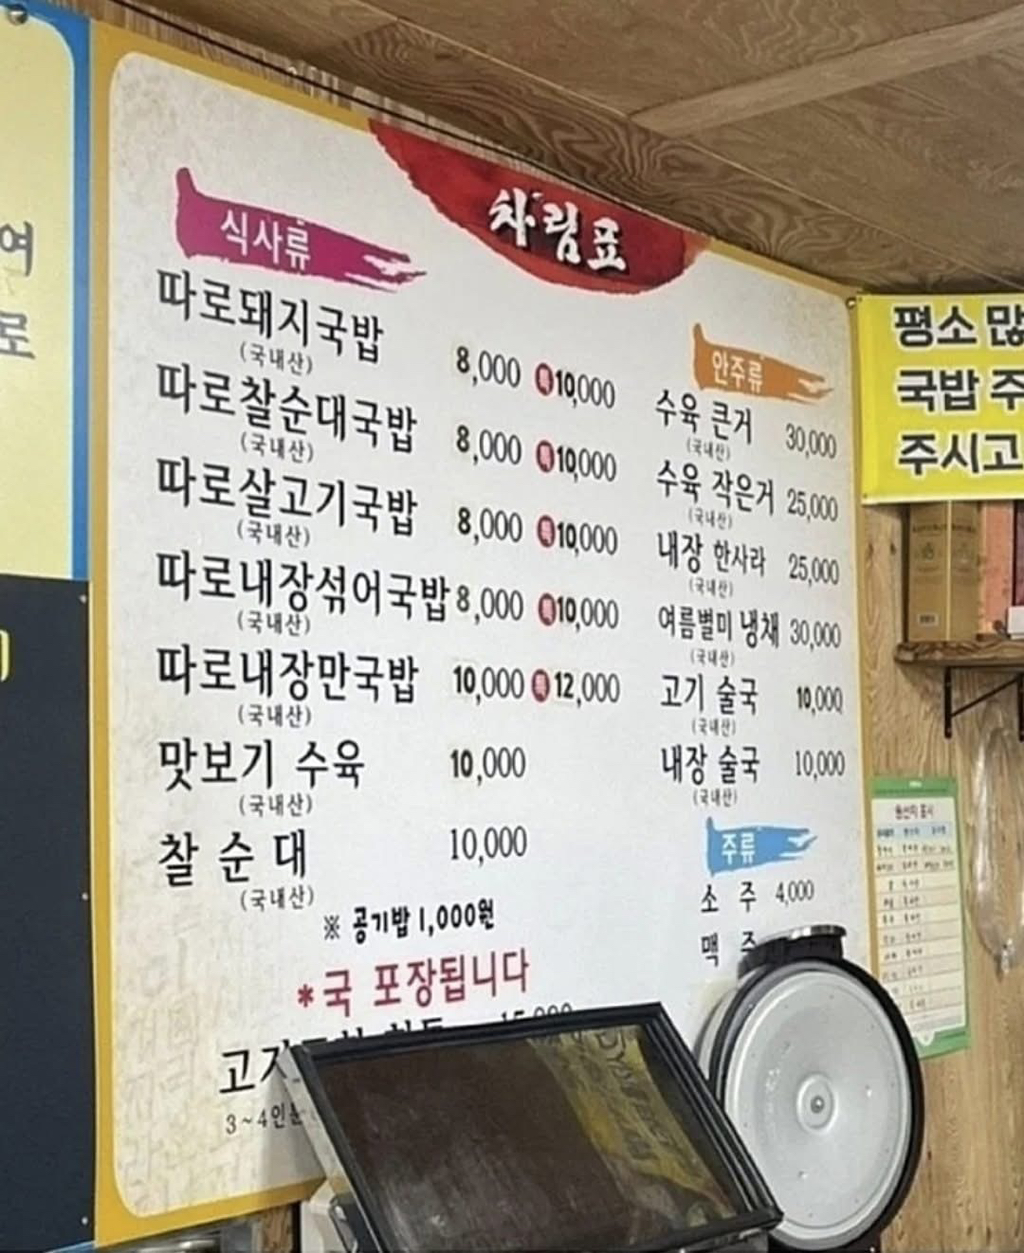 차림표
식사류
따로돼지국밥 8,000 특 10,000
(국내산)
따로찰순대국밥 8,000 특 10,000
(국내산)
따로살고기국밥 8,000 특 10,000
(국내산)
따로내장섞어국밥 8,000 특 10,000
(국내산)
따로내장만국밥 10,000 특 12,000
(국내산)
맛보기 수육 10,000
(국내산)
찰순대 10,000
(국내산)
※ 공기밥 1,000원
*국 포장됩니다
3~4인분
안주류
수육 큰거 30,000
(국내산)
수육 작은거 25,000
(국내산)
내장 한사라 25,000
(국내산)
여름별미 냉채 30,000
(국내산)
고기 술국 10,000
(국내산)
내장 술국 10,000
(국내산)
주류
소 주 4,000
맥
평소 많
국밥 주
주시고
여
로